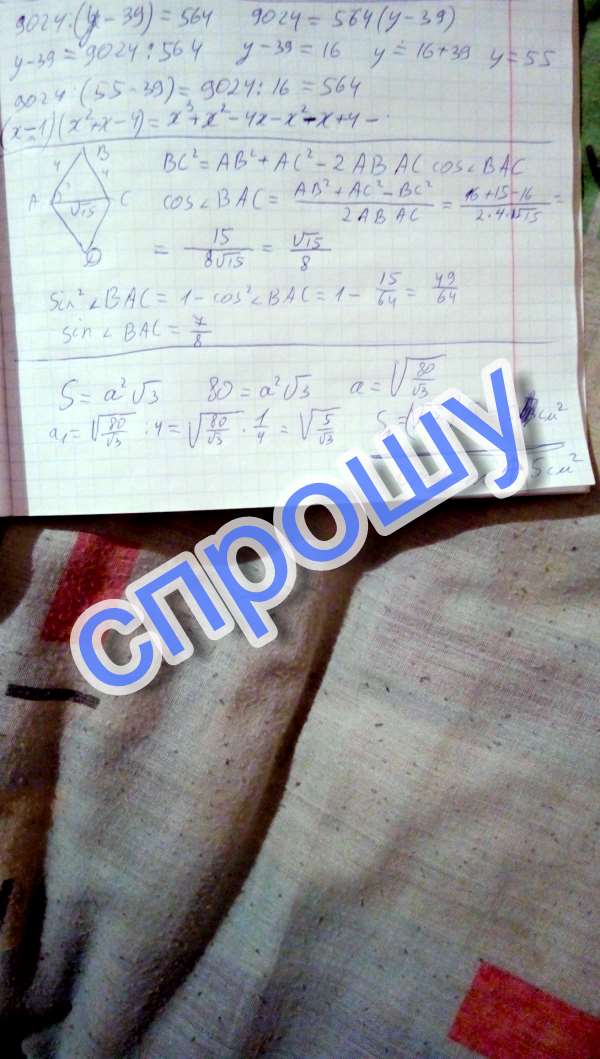 9024:(y-39)=564 9024=564(y-39)
y-39=9024:564 y-39=16 y=16+39 y=55
9024:(55-39)=9024:16=564
(x-1)(x²+x-4)=x³+x²-4x-x²-x+4-
B
4 4
A √15 C
D
BC²=AB²+AC²-2AB AC cos∠BAC
cos∠BAC= AB²+AC²-BC² / 2AB AC = 16+15-16 / 2·4·√15 =
= 15/8√15 = √15/8
sin²∠BAC=1-cos²∠BAC=1-15/64=49/64
sin∠BAC=7/8
S=a²√3 80=a²√3 a=√80/√3
a₁=√80/√3 :4=√80/√3 · 1/4=√5/√3 S= см²
5см²
спрошу